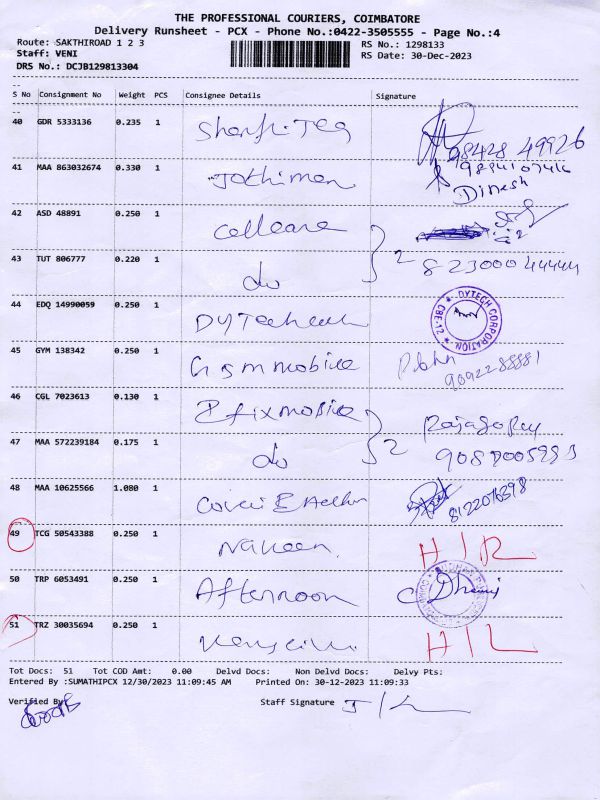 THE PROFESSIONAL COURIERS, COIMBATORE
Delivery Runsheet - PCX - Phone No.:0422-3505555 - Page No.:4
Route: SAKTHIROAD 1 2 3 RS No.: 1298133
Staff: VENI RS Date: 30-Dec-2023
DRS No.: DCJB129813304
S No Consignment No Weight PCS Consignee Details Signature
40 GDR 5333136 0.235 1 98428 49926
41 MAA 863032674 0.330 1 Jothiman
Dinesh
42 ASD 48891 0.250 1 cellcare
43 TUT 806777 0.220 1 do 2 8230004444
44 EDQ 14990059 0.250 1 DYTech DYTECH CORPORATION CBE-12
45 GYM 138342 0.250 1 GSM mobile
9092288881
46 CGL 7023613 0.130 1 Pfixmobile
47 MAA 572239184 0.175 1 do 2
48 MAA 10625566 1.080 1
49 TCG 50543388 0.250 1 Naveen
50 TRP 6053491 0.250 1 Afternoon
51 TRZ 30035694 0.250 1
Tot Docs: 51 Tot COD Amt: 0.00 Delvd Docs: Non Delvd Docs: Delvy Pts:
Entered By :SUMATHIPCX 12/30/2023 11:09:45 AM Printed On: 30-12-2023 11:09:33
Verified By Staff Signature